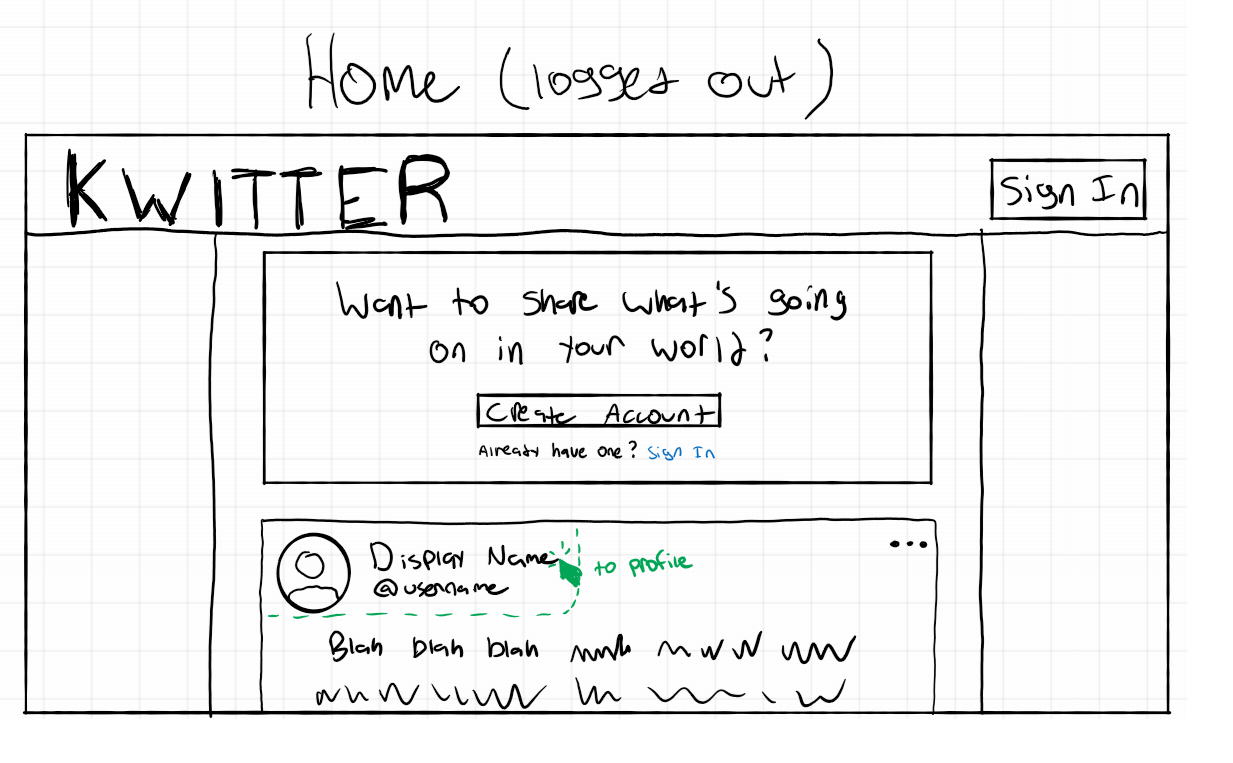 Home (logged out)
KWITTER
Sign In
Want to share what's going
on in your world?
Create Account
Already have one? Sign In
Display Name
@username
to profile
Blah blah blah